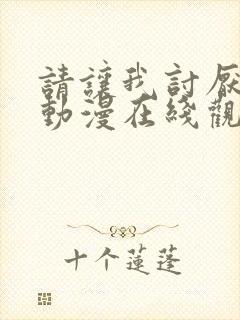 請讓我討厭
動漫在綫觀
十个蓮蓬